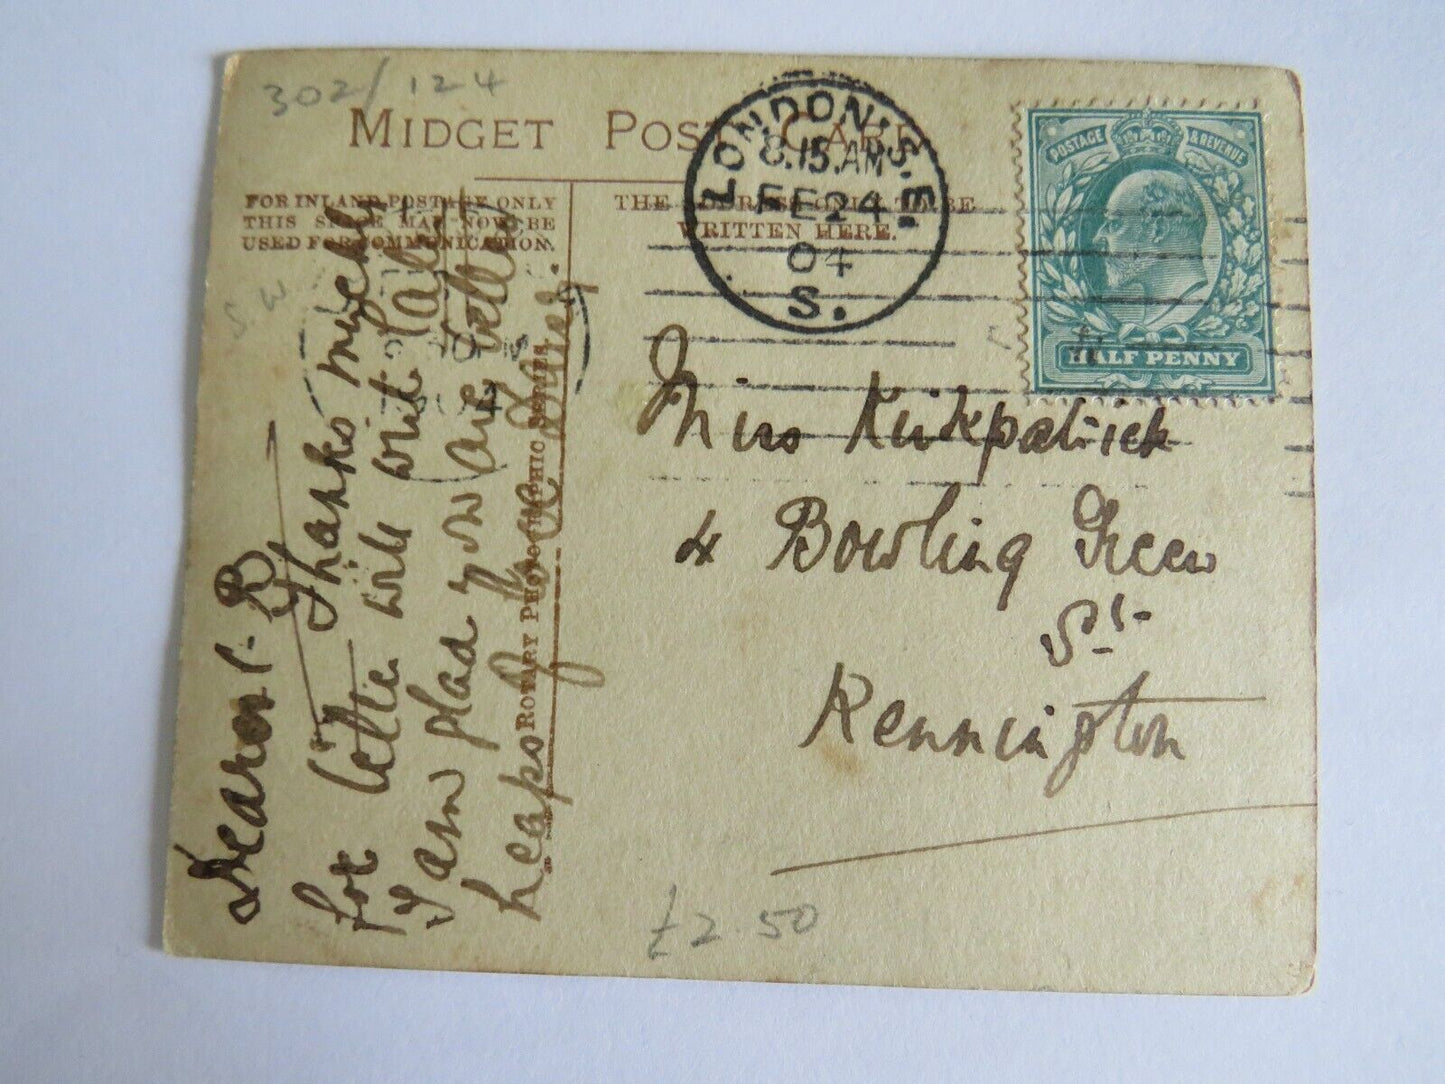 302/124
MIDGET POST CARD
FOR INLAND POSTAGE ONLY
THIS SPACE MAY NOW BE
USED FOR COMMUNICATION.
THE ADDRESS ONLY TO BE
WRITTEN HERE.
LONDON. S.E.
8.15.AM
FE 24
04
S.
POSTAGE & REVENUE
HALF PENNY
S.W
Miss Kirkpatrick
4 Bowling Green
St.
Kennington
Dearest R
Thanks much
for letter will write later
I am glad you are better
heaps of love
ROTARY PHOTOGRAPHIC SERIES.
£2.50